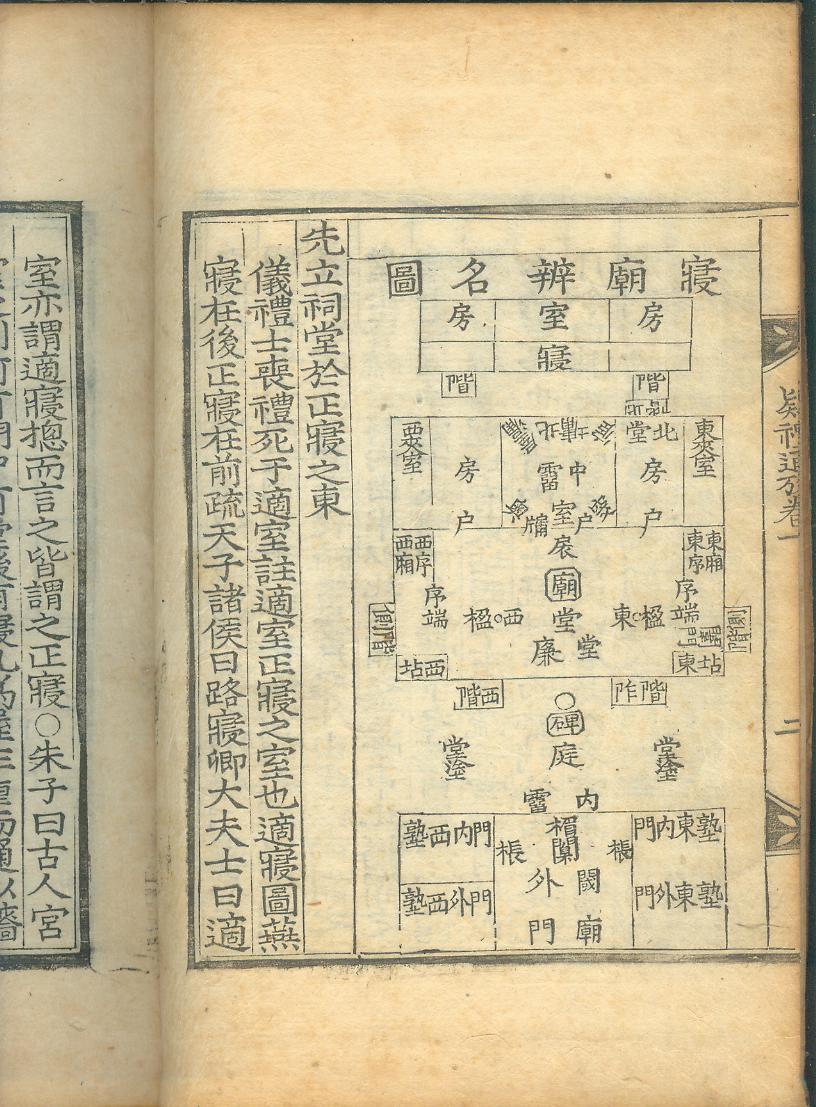 疑禮通攷卷一
二
寢廟辨名圖
房
室
房
寢
階
階
東夾室
北堂
房
戶
北墉
中霤
室
戶
牖
房
戶
西夾室
扆
東廂
東序
西序
西廂
廟
序端
東楹
堂
西楹
序端
側階
側階
堂廉
東坫
西坫
阼階
西階
碑
庭
堂塗
堂塗
內霤
東塾
內門
楣
闑
棖
棖
門內西塾
東塾
外門
閾外
廟門
門外西塾
先立祠堂於正寢之東
儀禮士喪禮死于適室註適室正寢之室也適寢圖燕
寢在後正寢在前疏天子諸侯曰路寢卿大夫士曰適
室亦謂適寢摠而言之皆謂之正寢○朱子曰古人宮